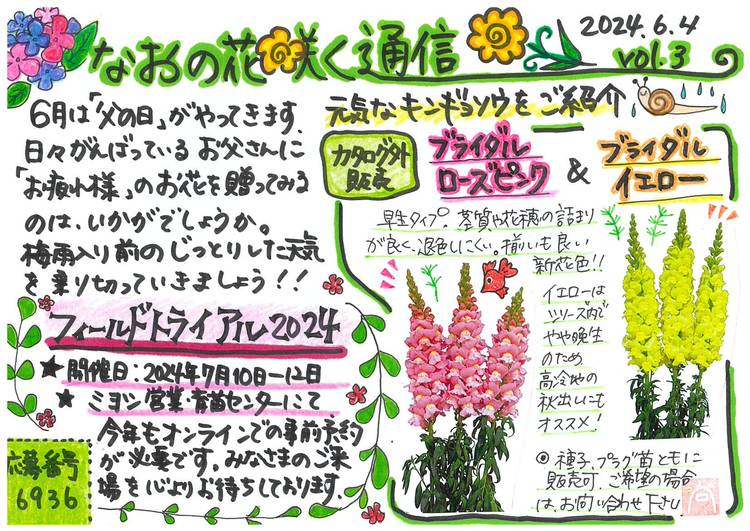 なおの花咲く通信
2024.6.4
vol.3
6月は「父の日」がやってきます。
日々がんばっているお父さんに
「お疲れ様」のお花を贈ってみる
のは、いかがでしょうか。
梅雨入り前のじっとりした天気
を乗り切っていきましょう!!
フィールドトライアル2024
★開催日:2024年7月10日-12日
★ミヨシ営業・育苗センターにて
今年もオンラインでの事前予約
が必要です。みなさまのご来
場を心よりお待ちしております。
応募番号
6936
元気なキンギョソウをご紹介
カタログ外
販売
ブライダル
ローズピンク
&
ブライダル
イエロー
早生タイプ。茎質や花穂の詰まり
が良く、退色しにくい。揃いも良い
新花色!!
イエローは
シリーズ内で
やや晩生
のため
高冷地の
秋出しにも
オススメ!
◎種子、プラグ苗ともに
販売可。ご希望の場合
は、お問い合わせ下さい